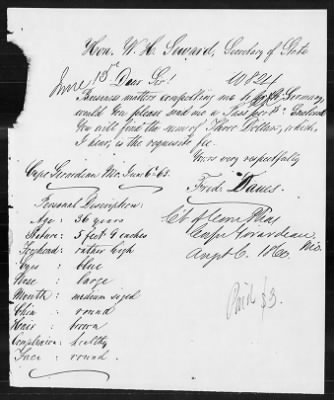 Hon. W. H. Seward, Secretary of State
June 13th Dear Sir! 10824
Business matters compelling me to go to Germany
would you please send me a Passport. Enclosed
you will find the sum of Three Dollars, which,
I hear, is the requisite fee.
Yours very respectfully
Cape Girardeau Mo. June 6th 63. Fred.
Personal Description: Ct of Com Pleas
Age: 36 years Cape Girardeau
Stature: 5 feet 9 inches Augst 6. 1860. Mo.
Forehead: rather high
Eyes: blue
Nose: large
Mouth: medium sized
Chin: round
Hair: brown
Complexion: healthy
Face: round.
Paid $3.